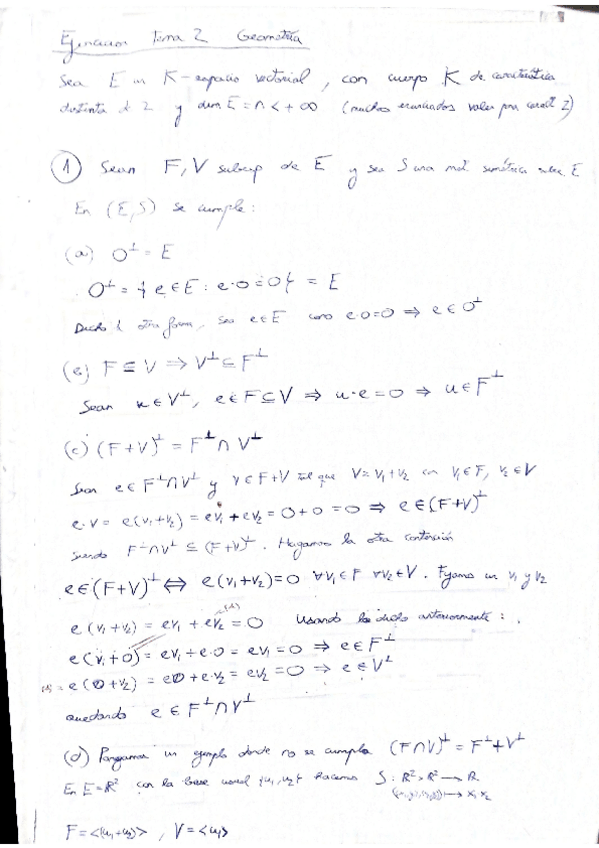 Ejercicios Tema 2 Geometría
Sea E un K-espacio vectorial, con cuerpo K de característica
distinta de 2 y dim E = n < +∞ (muchos enunciados valen para caract 2)
① Sean F, V subesp de E y sea S una mét. simétrica sobre E
En (E,S) se cumple:
(a) O^⊥ = E
O^⊥ = {e ∈ E : e·0 = 0} = E
Dicho de otra forma, sea e∈E como e·0=0 ⇒ e ∈ O^⊥
(b) F ⊆ V ⇒ V^⊥ ⊆ F^⊥
Sean u ∈ V^⊥, e ∈ F ⊆ V ⇒ u·e = 0 ⇒ u ∈ F^⊥
(c) (F+V)^⊥ = F^⊥ ∩ V^⊥
Sean e ∈ F^⊥∩V^⊥ y v ∈ F+V tal que V = v₁+v₂ con v₁∈F, v₂∈V
e·v = e(v₁+v₂) = ev₁ + ev₂ = 0+0 = 0 ⇒ e ∈ (F+V)^⊥
siendo F^⊥∩V^⊥ ⊆ (F+V)^⊥. Hagamos la otra contención
e ∈ (F+V)^⊥ ⇔ e(v₁+v₂)=0 ∀v₁∈F ∀v₂∈V. Fijamos un v₁ y v₂
e(v₁+v₂) = ev₁ + ev₂ = 0 Usando lo dicho anteriormente:
e(v₁+0) = ev₁ + e·0 = ev₁ = 0 ⇒ e ∈ F^⊥
= e(0+v₂) = e0 + e·v₂ = ev₂ = 0 ⇒ e ∈ V^⊥
quedando e ∈ F^⊥∩V^⊥
(d) Pongamos un ejemplo donde no se cumpla (F∩V)^⊥ = F^⊥+V^⊥
En E=ℝ² con la base usual {u₁,u₂} hacemos S: ℝ²×ℝ² → ℝ
→ x₁x₂
F = <(u₁+u₂)>, V = <u₁>